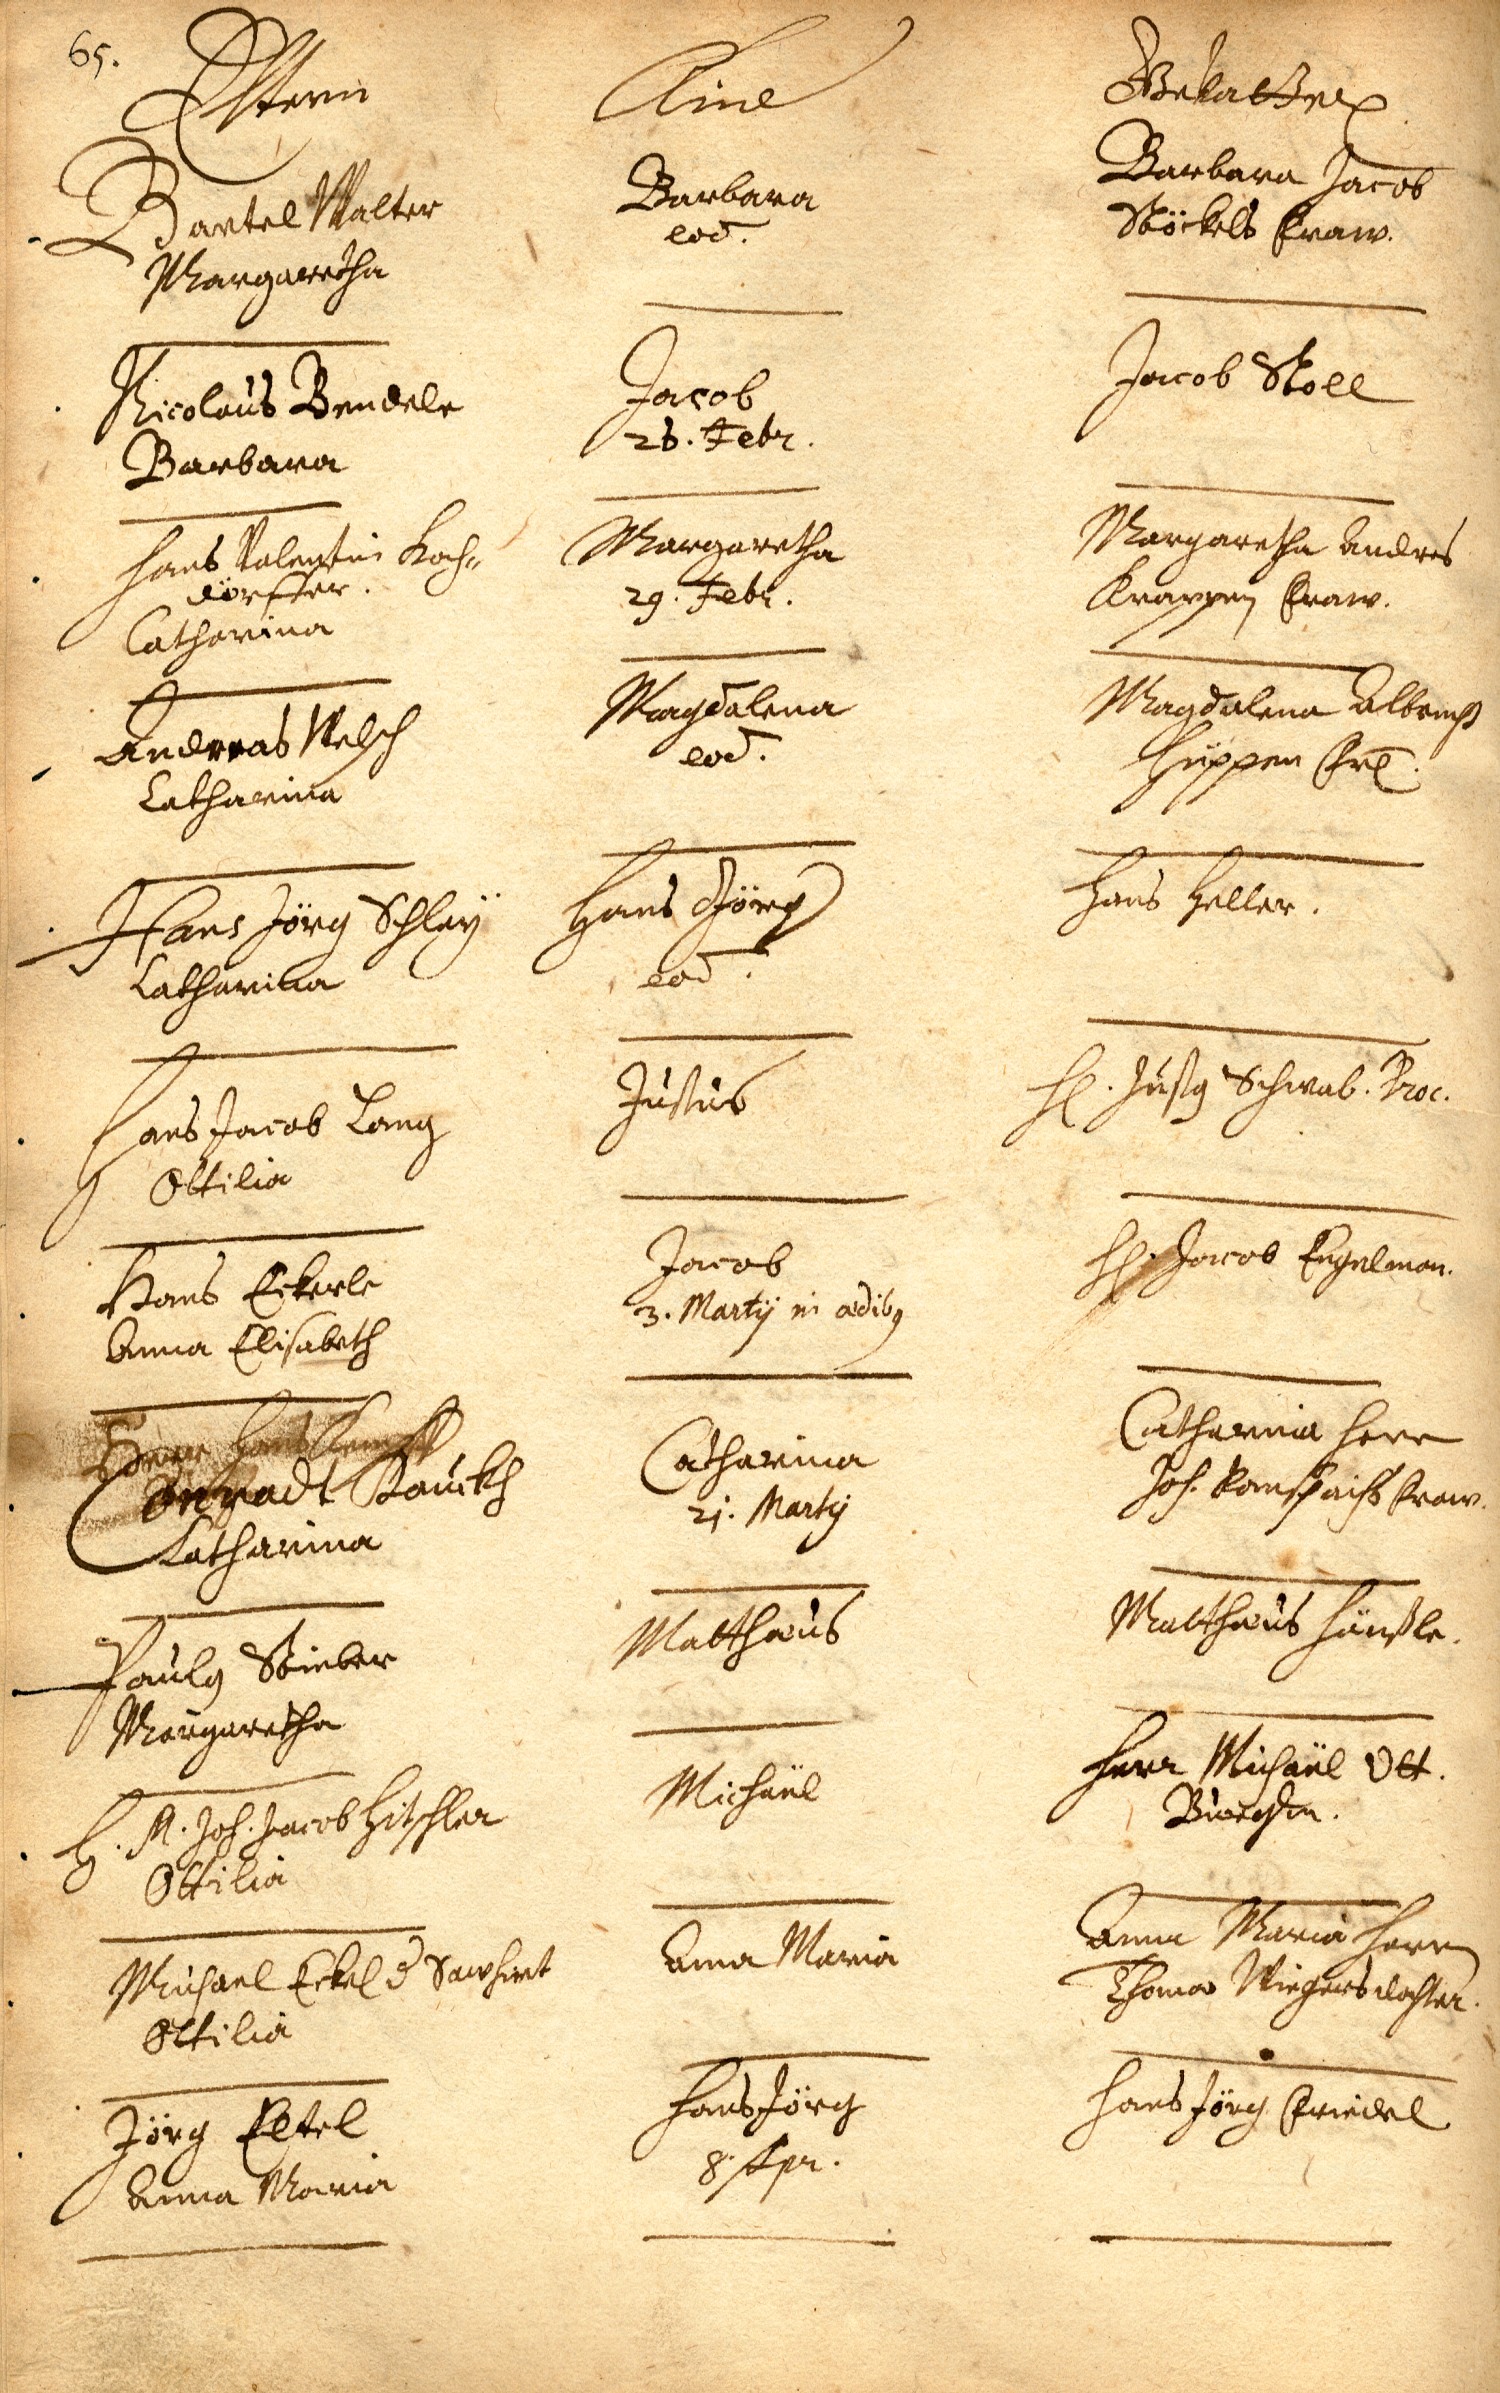 65.
Eltern
Kind
Gevattern
Bartel Walter
Margaretha
Barbara
eod.
Barbara Jacob
Stöckels Fraw.
Nicolaus Bendele
Barbara
Jacob
28. Febr.
Jacob Stoll
Hans Valentin Koch-
dörffer.
Catharina
Margaretha
29. Febr.
Margaretha Andres
Krappen Fraw.
Andreas Welsch
Catharina
Magdalena
eod.
Magdalena Albrecht
Hüppen Fr.
Hans Jörg Schley
Catharina
Hans Jörg
eod.
Hans Heller.
Hans Jacob Lang
Ottilia
Justus
H. Justus Schwab. Proc.
Hans Eckerle
Anna Elisabeth
Jacob
3. Martij in ædibus
H. Jacob Engelman.
Conradt
Catharina
Catharina
21. Martij
Catharina Herr
Joh. Fraw.
Paulus Stieber
Margaretha
Matthæus
Matthæus Hänßle.
H. M. Joh. Jacob Hitschler
Ottilia
Michaël
Herr Michaël Ott.
Michael Eckel d Sawhirt
Ottilia
Anna Maria
Anna Maria Herrn
Thomæ dochter.
Jörg Eltel
Anna Maria
Hans Jörg
8. Apr.
Hans Jörg Friedel